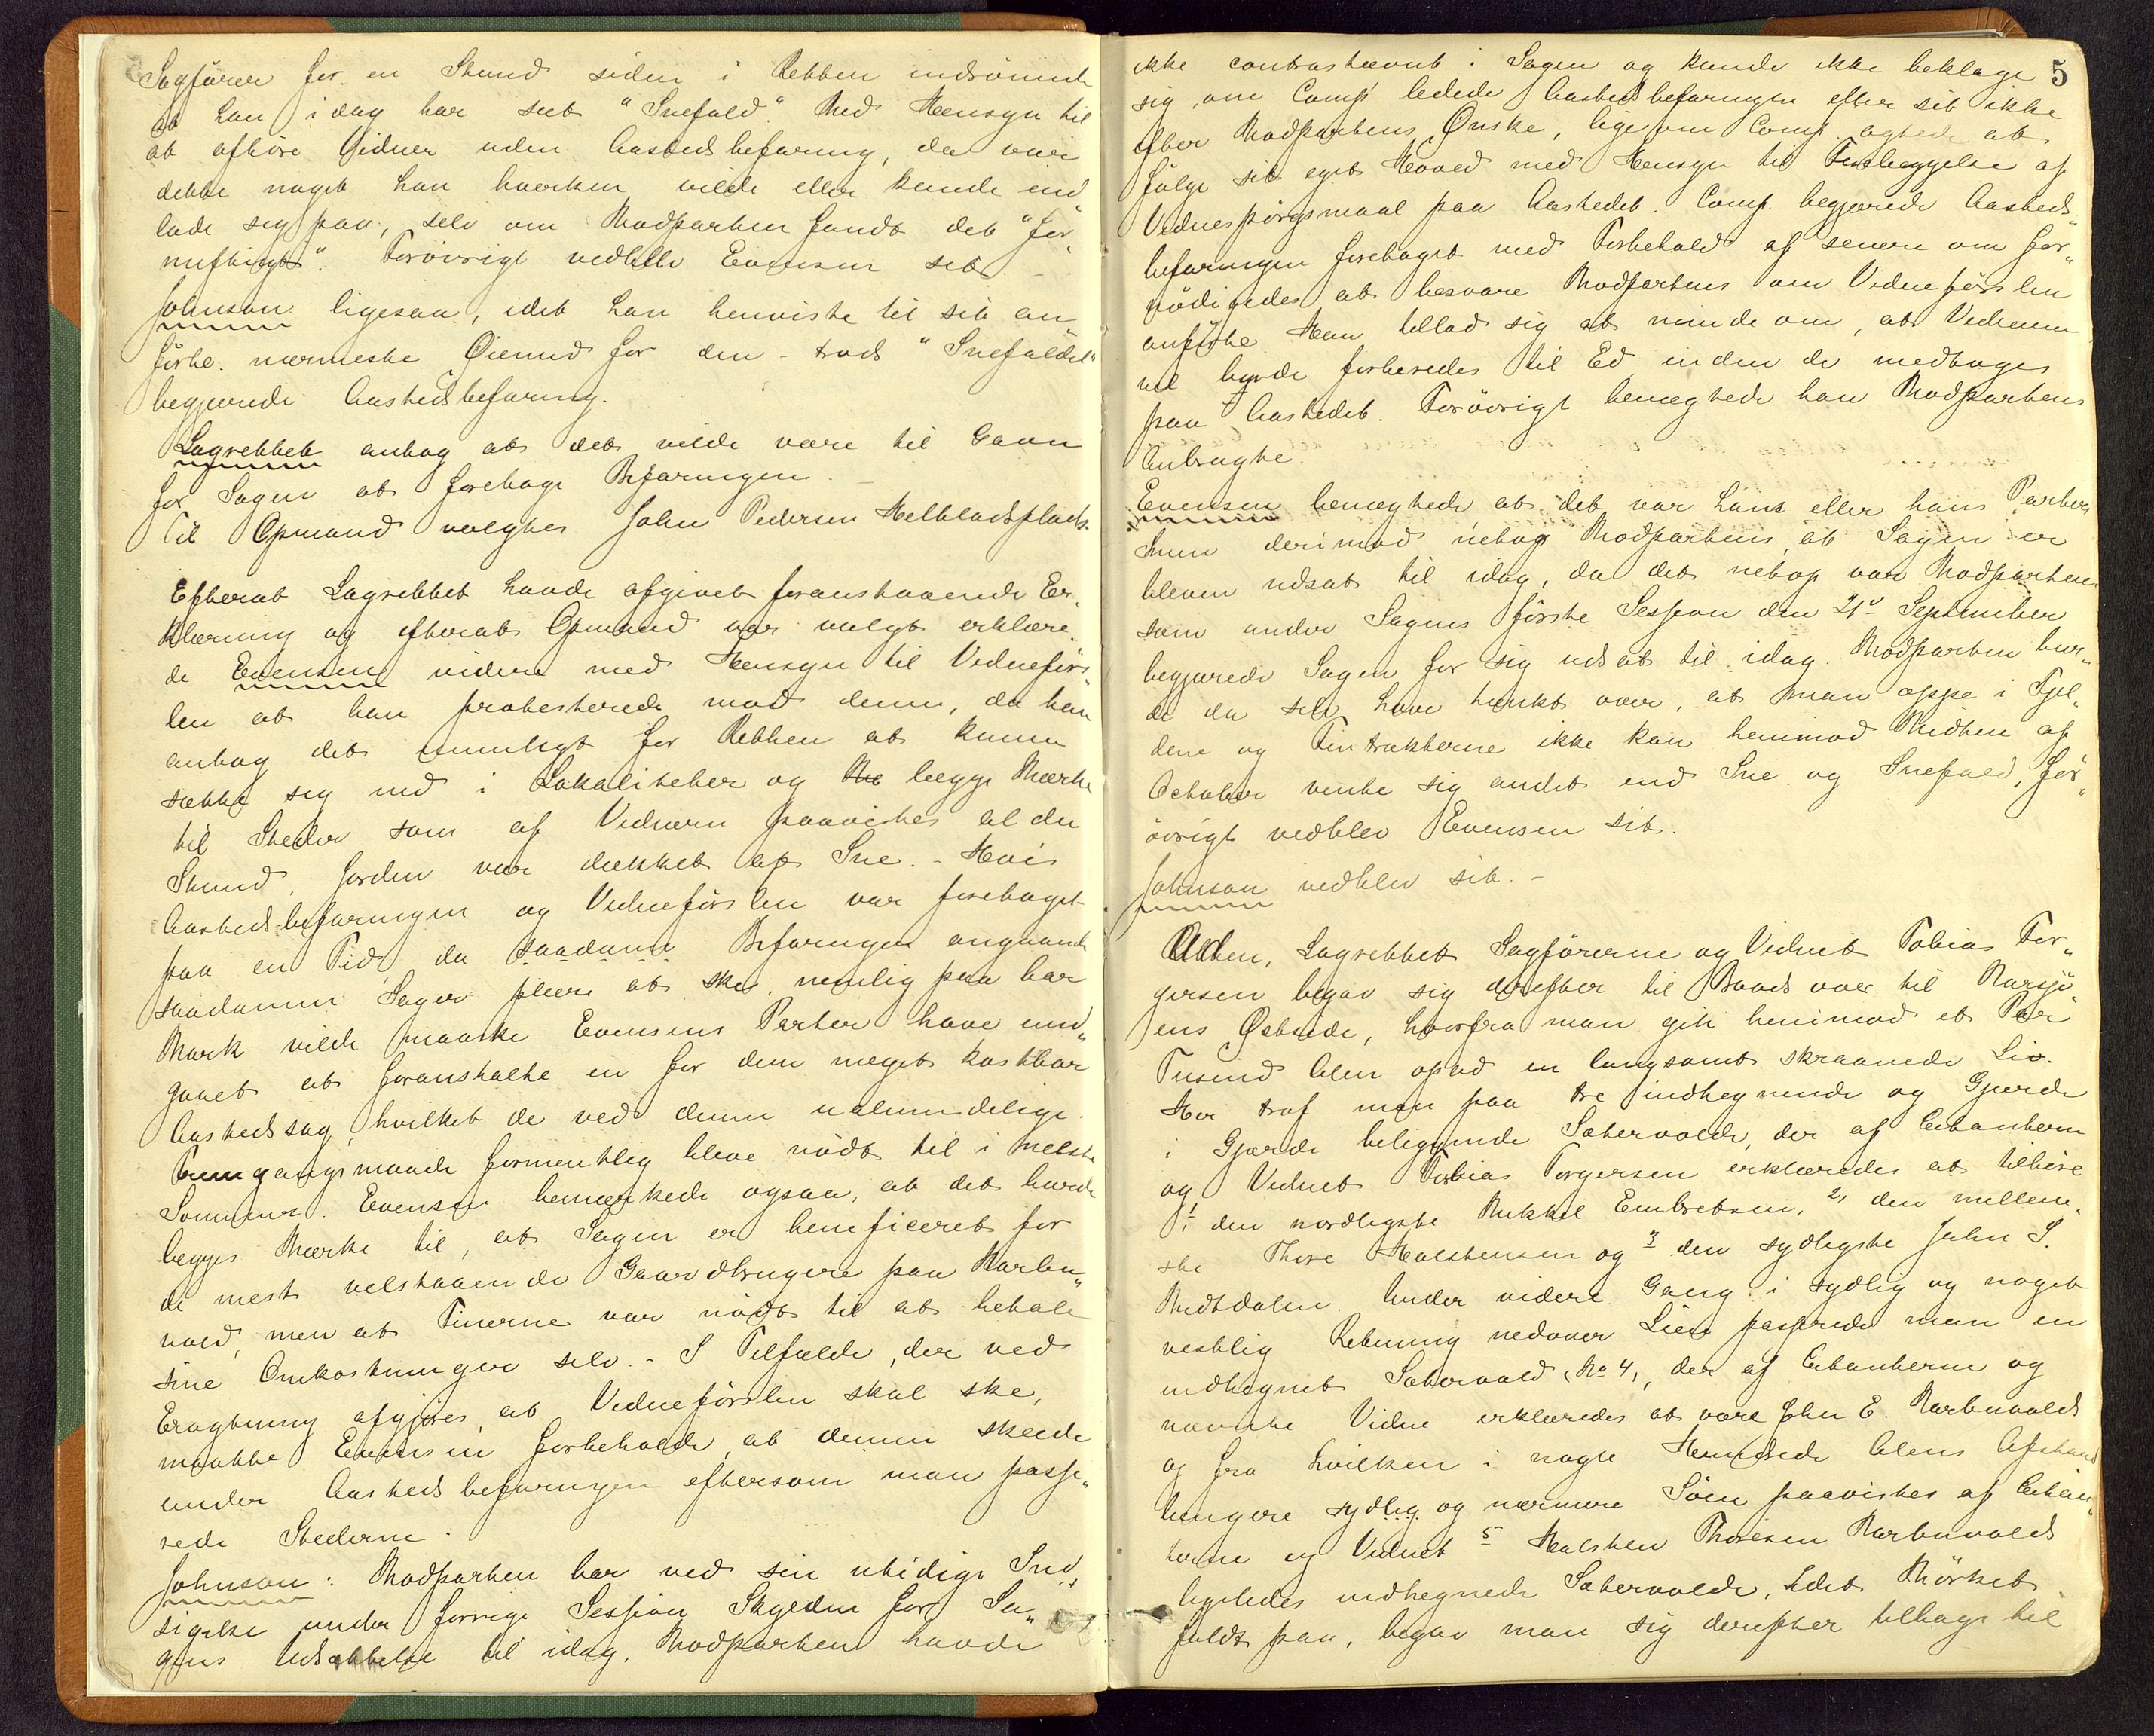 Sagfører for en Stund siden i Retten indrømmet
at han i dag har set "Snefald". Med Hensyn til
at afhøre Vidner uden Aastedsbefaring, da var
dette noget han hverken vilde eller kunde ind„
lade sig paa, selv om Modparten fandt det "for„
nuftigt". Forøvrigt vedblev Evensen sit. –
Johnson ligesaa, idet han henviste til sit an
førte nærmeste Øiemed for den – trods "Snefaldet"
begjærede Aastedsbefaring.
Lagrettet antog at det vilde være til Gavn
for Sagen at foretage Befaringen. –
Til Opmand valgtes John Pedersen Melbladsplads
Efterat Lagrettet havde afgivet foranstaaende Er„
klæring og efterat Opmand var valgt erklære„
de Evensen videre med Hensyn til Vidneførs„
len at han protesterede mod denne, da han
antog det umuligt for Retten at kunne
sætte sig ind i Lokaliteter og lægge Mærke
til Steder som af Vidnerne paavistes al den
Stund Jorden var dækket af Sne. – Hvis
Aastedsbefaringen og Vidneførslen var foretaget
paa en Tid, da saadanne Befaringer angaaende
saadanne Sager pleier at ske, nemlig paa bar
Mark vilde maaske Evensens Parter have und„
gaaet at foranstalte en for dem meget kostbar
Aastedssag, hvilket de ved denne ualmindelige
Fremgangsmaade formentlig bleve nødt til i næste
Sommer. Evensen bemærkede ogsaa, at det burde
lægges Mærke til, at Sagen er beneficeret for
de mest velstaaende Gaardbrugere paa Narbu„
vold, men at Finerne var nødt til at betale
sine Omkostninger selv. – I Tilfælde, der ved
Eragtning afgjøres, at Vidneførslen skal ske,
maatte Evensen forbeholde, at denne skede
under Aastedsbefaringen eftersom man passe„
rede Stederne.
Johnson: Modparten har ved sin utidige Ind„
sigelse under forrige Session Skylden for Sa„
gens Udsættelse til idag. Modparten havde
5
ikke contrastævnt i Sagen og kunde ikke beklage
sig, om Comp. ledede Aastedsbefaringen efter sit ikke
efter Modpartens Ønske, ligesom Comp. agtede at
følge sit eget Hoved med Hensyn til Fremlæggelse af
Vidnespørgsmaal paa Aastedet. Comp. begjærede Aasteds„
befaringen foretaget med Forbehold af senere om for„
nødigedes at besvare Modpartens om Vidneførslen
anførte. Han tillod sig at minde om, at Vidnerne
vel burde forberedes til Ed inden de medtages
paa Aastedet. Forøvrigt benægtede han Modpartens
Anbragte.
Evensen benægtede at det var hans eller hans Parters
men derimod netop Modpartens at Sagen er
bleven udsat til idag, da det netop var Modparten
som under Sagens første Session den 21de September
begjærede Sagen for sig udsat til idag. Modparten bur„
de da selv have tænkt over, at man oppe i Fjel„
dene og Fintrakterne ikke kan henimod Midten af
October vente sig andet end Sne og Snefald, for„
øvrigt vedblev Evensen sit.
Johnson vedblev sit. –
Retten, Lagrettet Sagførerne og Vidnet Tobias Tor„
gersen begav sig derefter til Baads over til Narsjø
ens Østside, hvorfra man gik henimod et Par
Tusind Alen opad en langsomt skraanede Li.
Her traf man paa tre indhegnende og Gjærde
i Gjærde beliggende Sætervolde, der af Citanterne
og Vidnet Tobias Torgersen erklæredes at tilhøre
1, den nordligste Mikkel Embretsen, 2, den mellem„
ste Thore Halstensen og 3 den sydligste John S.
Midtdalen. Under videre Gang i sydlig og noget
vestlig Retning nedover Lien passerede man en
indhegnet Sætervold, No 4, der af Citanterne og
nævnte Vidne erklæredes at være John E. Narbuvolds
og fra hvilken i nogle Hundrede Alens Afstand
længere sydlig og nærmere Søen paavistes af Citan„
terne og Vidnet 5 Halsten Thoresen Narbuvolds
ligeledes indhegnede Sætervolde. Idet Mørket
faldt paa, begav man sig derefter tilbage til